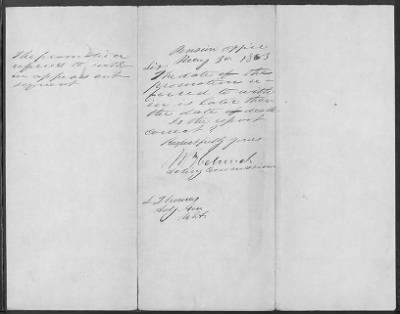 The promotion
referred to with
in appears out
segment
Pension Office
May 30 1863
Sir,
The date of the
promotion re-
ferred to with
in is later than
the date of death
Is the report
correct?
Respectfully yours
Acting Commissioner
L Thomas
Adj Gen